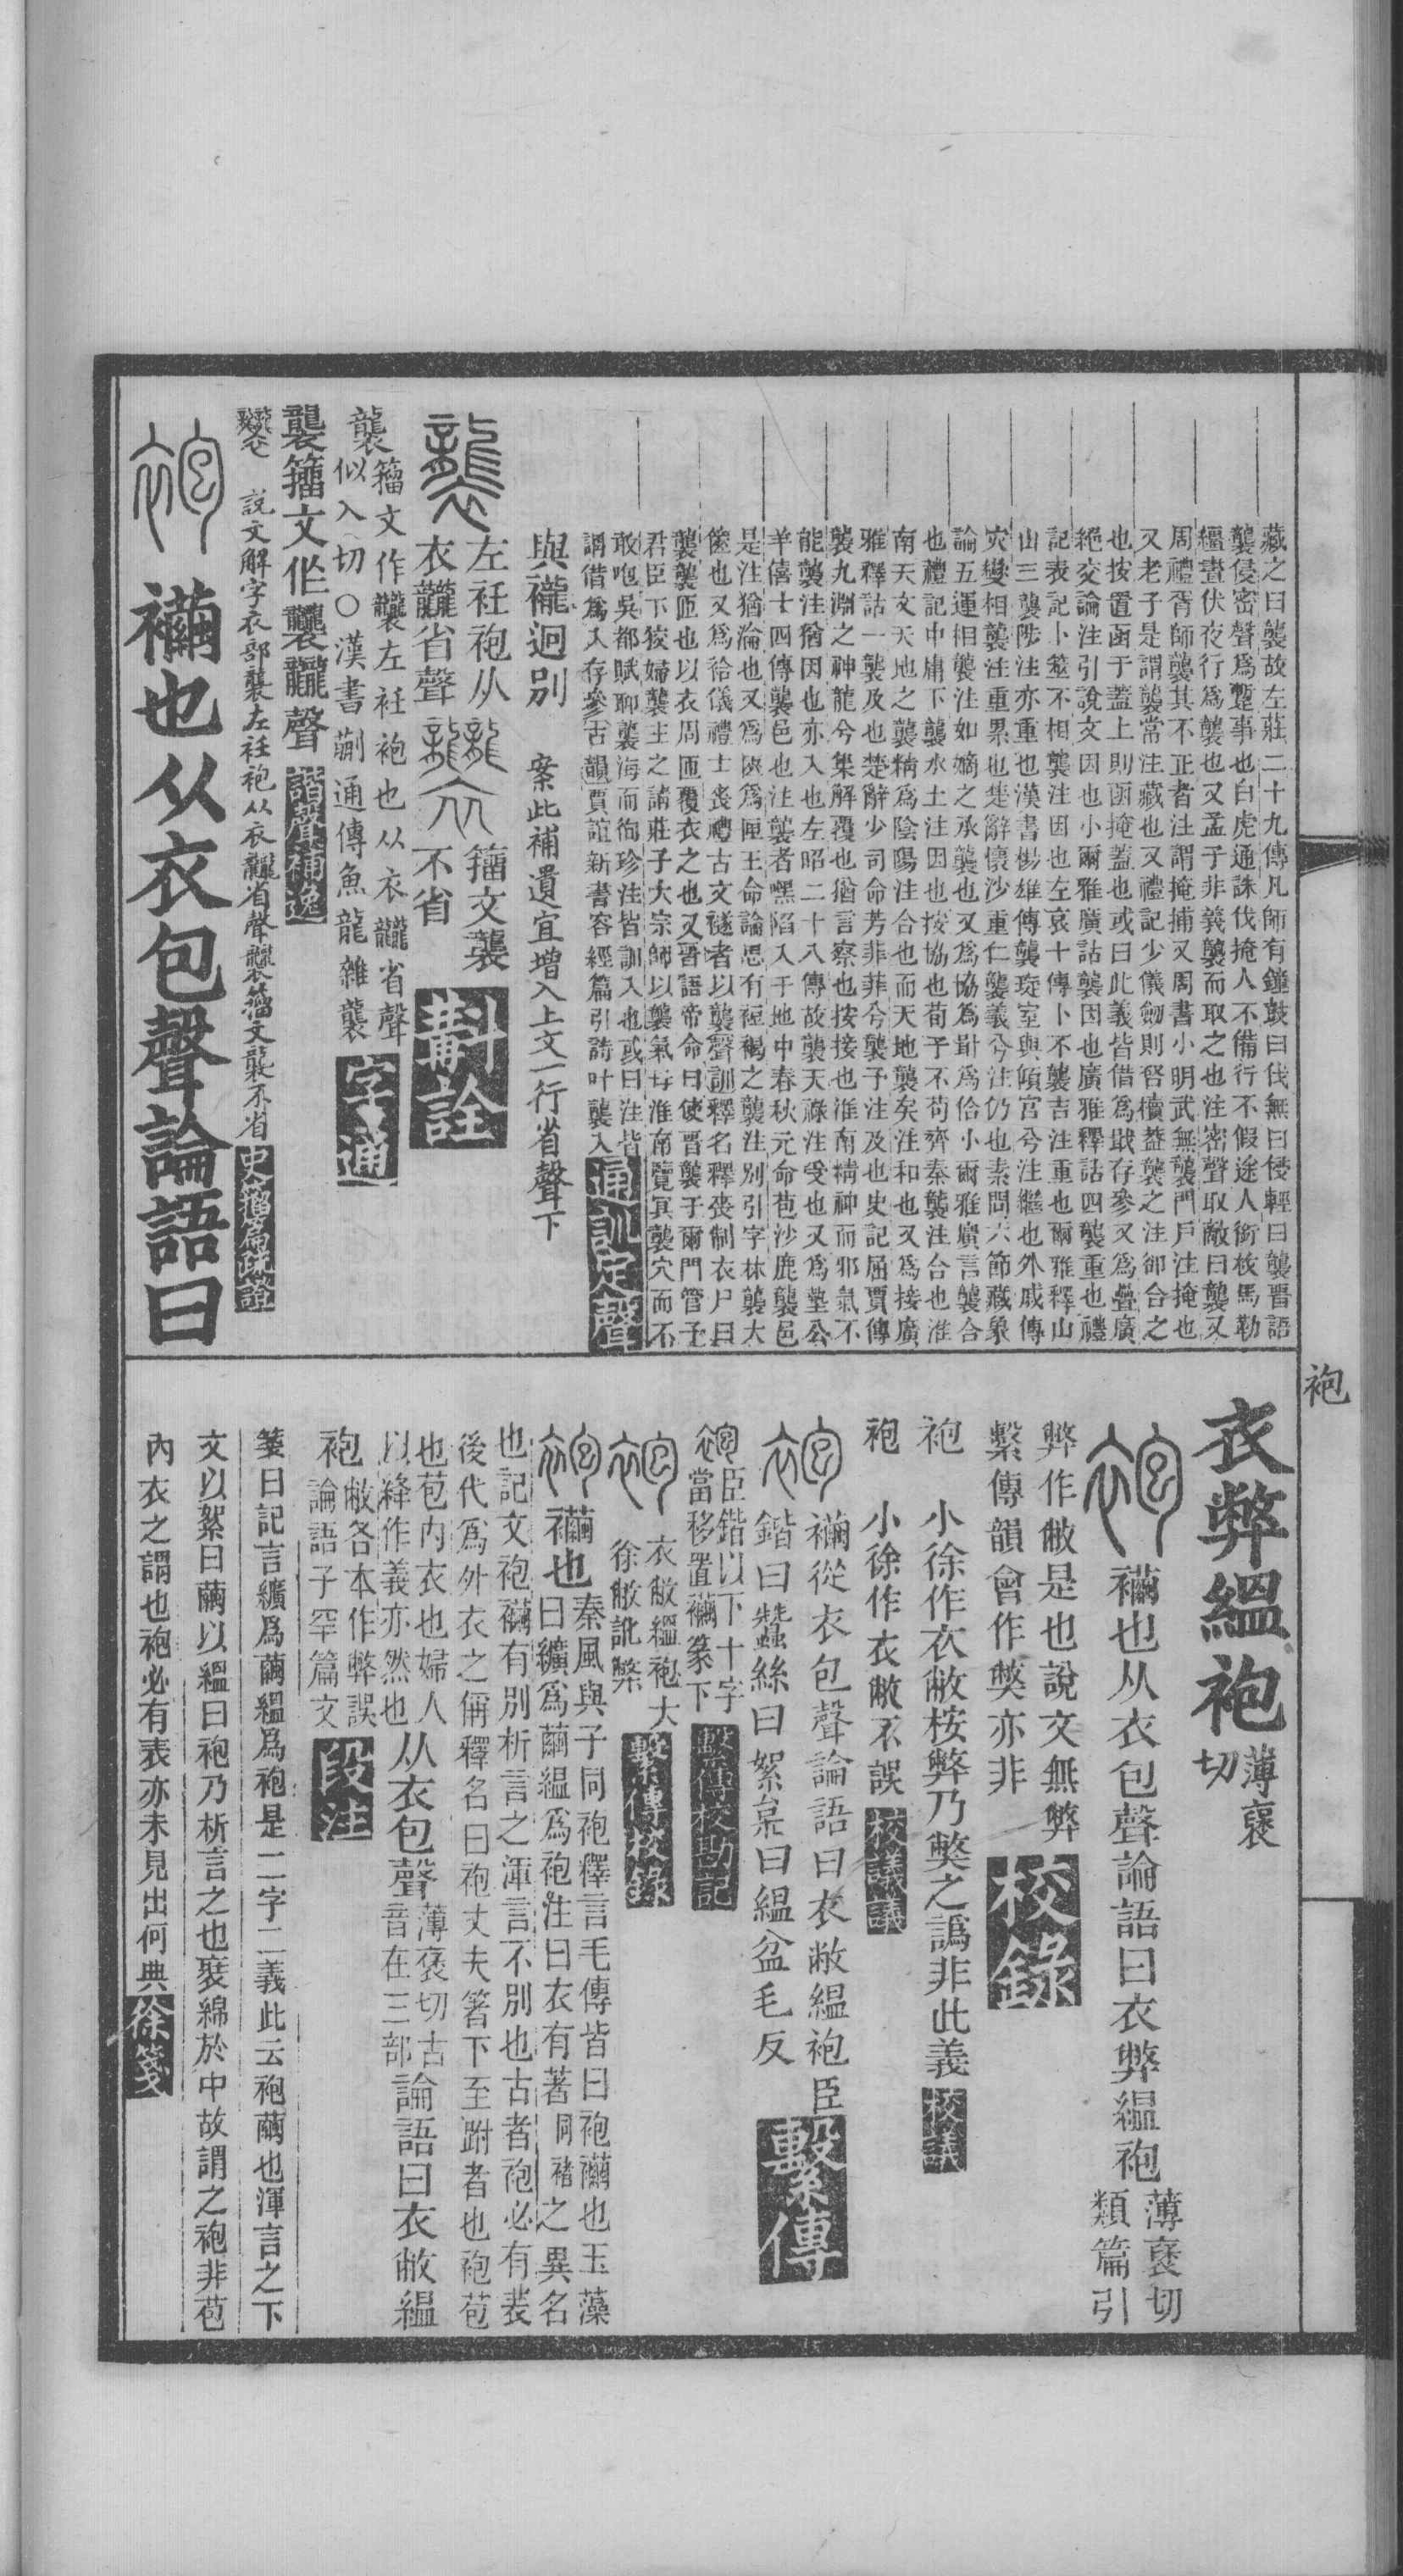 藏之曰襲故左莊二十九傳凡師有鐘鼓曰伐無曰侵輕曰襲晋語
襲侵密聲爲蹔事也白虎通誅伐掩人不備行不假途人銜枚馬勒
繮晝伏夜行爲襲也又孟子非義襲而取之也注密聲取敵曰襲又
周禮胥師襲其不正者注謂掩捕又周書小明武無襲門戶注掩也
又老子是謂襲常注藏也又禮記少儀劒則啓櫝葢襲之注卻合之
也按置函于蓋上則函掩蓋也或曰此義皆借爲戢存參又爲疊廣
絕交論注引說文因也小爾雅廣詁襲因也廣雅釋詁四襲重也禮
記表記卜筮不相襲注因也左哀十傳卜不襲吉注重也爾雅釋山
山三襲陟注亦重也漢書楊雄傳襲琁室與傾宮兮注繼也外戚傳
災變相襲注重累也楚辭懷沙重仁襲義兮注仍也素問六節藏象
論五運相襲注如嫡之承襲也又爲協爲敆爲佮小爾雅廣言襲合
也禮記中庸下襲水土注因也按協也荀子不苟齊秦襲注合也淮
南天文天地之襲精爲陰陽注合也而天地襲矣注和也又爲接廣
雅釋詁一襲及也楚辭少司命芳菲菲兮襲予注及也史記屈賈傳
襲九淵之神龍兮集解覆也猶言察也按接也淮南精神而邪氣不
能襲注猶因也亦入也左昭二十八傳故襲天祿注受也又爲墊公
羊僖十四傳襲邑也注襲者嘿陷入于地中春秋元命苞沙鹿襲邑
是注猶淪也又爲陜爲匣王命論思有裋褐之襲注別引字林襲大
篋也又爲袷儀禮士喪禮古文襚者以襲聲訓釋名釋喪制衣尸曰
襲襲匝也以衣周匝覆衣之也又晋語帝命曰使晋襲于爾門管子
君臣下狡婦襲主之請莊子大宗師以襲氣母淮南覽冥襲穴而不
敢咆吳都賦聊襲海而徇珍注皆訓入也或曰注皆
謂借爲入存參古韻賈誼新書容經篇引詩叶襲入通訓定聲
與襱迥別 案此補遺宜增入上文一行省聲下
左衽袍从
衣龖省聲
籀文襲
不省
斠詮
襲籀文作襲左衽袍也从衣龖省聲
似入切○漢書蒯通傳魚龍雜襲字通
襲籀文作襲龖聲諧聲補逸
說文解字衣部襲左衽袍从衣龖省聲籀文襲不省史籀篇疏證
襺也从衣包聲論語曰
袍
衣弊緼袍薄襃切
襺也从衣包聲論語曰衣弊緼袍薄襃切類篇引
弊作敝是也說文無弊
繫傳韻會作獘亦非校錄
袍 小徐作衣敝桉弊乃獘之譌非此義校議
袍 小徐作衣敝不誤校議議
襺從衣包聲論語曰衣敝緼袍臣
鍇曰蠶絲曰絮枲曰緼盆毛反繫傳
臣鍇以下十字
當移置襺篆下繫傳校勘記
衣敝緼袍大
徐敝訛弊繫傳校錄
襺也秦風與子同袍釋言毛傳皆曰袍襺也玉藻
曰纊爲繭緼爲袍注曰衣有著同褚之異名
也記文袍襺有別析言之渾言不別也古者袍必有表
後代爲外衣之偁釋名曰袍丈夫箸下至跗者也袍苞
也苞內衣也婦人
以絳作義亦然也从衣包聲薄襃切古音在三部論語曰衣敝緼
袍敝各本作弊誤
論語子罕篇文段注
箋曰記言纊爲繭緼爲袍是二字二義此云袍繭也渾言之下
文以絮曰繭以緼曰袍乃析言之也裝綿於中故謂之袍非苞
內衣之謂也袍必有表亦未見出何典徐箋